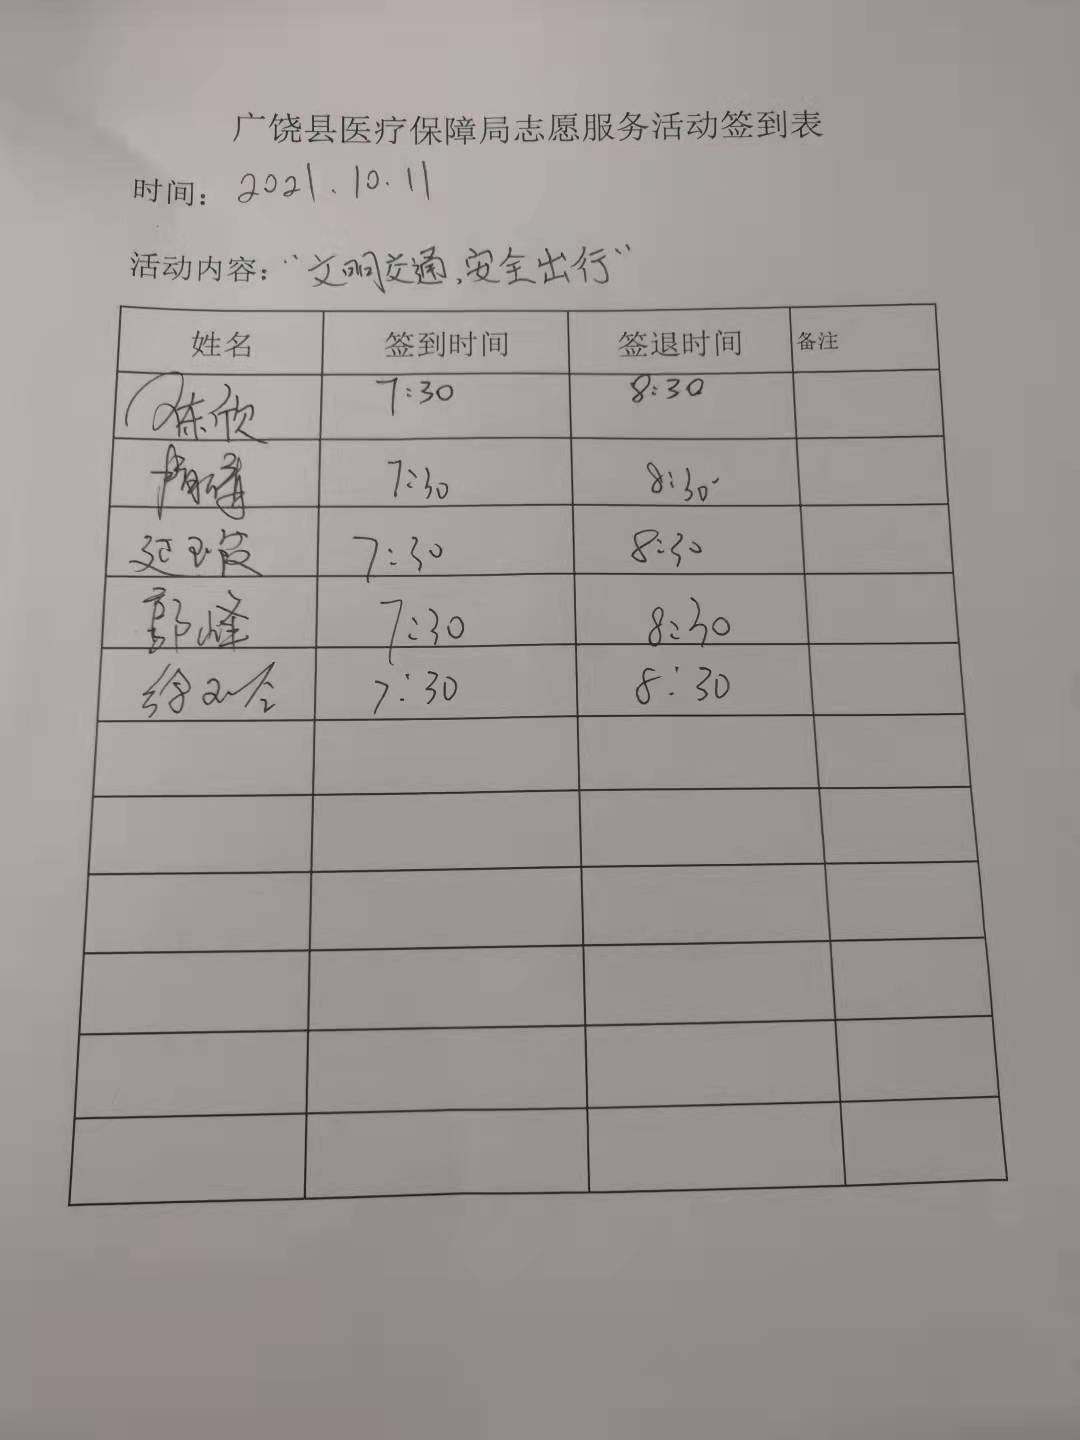 广饶县医疗保障局志愿服务活动签到表
时间：2021.10.11
活动内容：“文明交通,安全出行”
姓名 签到时间 签退时间 备注
陈欣 7:30 8:30
7:30 8:30
延玉霞 7:30 8:30
郭峰 7:30 8:30
徐 7:30 8:30